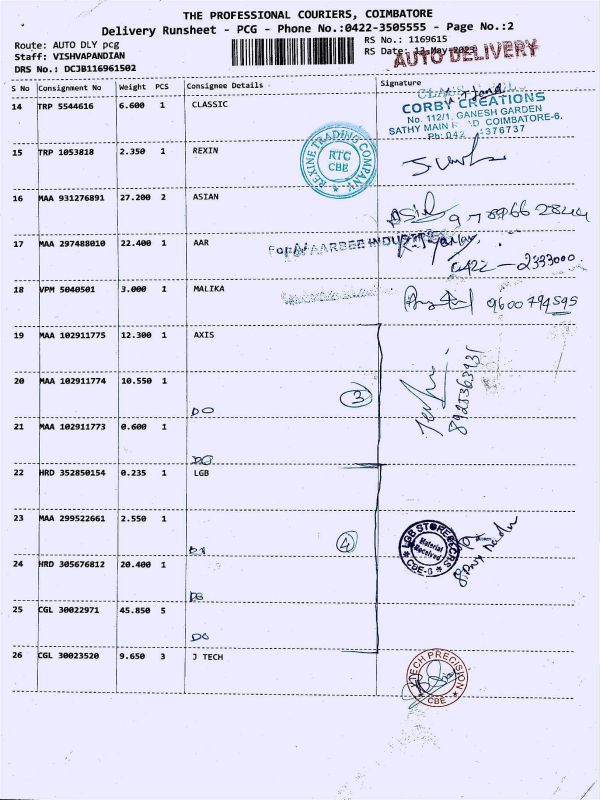 THE PROFESSIONAL COURIERS, COIMBATORE
Delivery Runsheet - PCG - Phone No.:0422-3505555 - Page No.:2
Route: AUTO DLY pcg
Staff: VISHVAPANDIAN
DRS No.: DCJB116961502
RS No.: 1169615
RS Date: 12-May-2023
AUTO DELIVERY
S No Consignment No Weight PCS Consignee Details Signature
14 TRP 5544616 6.600 1 CLASSIC
CORBY CREATIONS
No. 112/1, GANESH GARDEN
SATHY MAIN COIMBATORE-6.
Ph: 042 376737
15 TRP 1053818 2.350 1 REXIN
REXINE TRADING COMPANY
RTC
CBE
16 MAA 931276891 27.200 2 ASIAN
17 MAA 297488010 22.400 1 AAR
For AARBEE
0422-2333000
18 VPM 5040501 3.000 1 MALIKA
9600794595
19 MAA 102911775 12.300 1 AXIS
20 MAA 102911774 10.550 1
DO
3
8925363931
21 MAA 102911773 0.600 1
DO
22 HRD 352850154 0.235 1 LGB
23 MAA 299522661 2.550 1
4
LGB STORES
Material
Received
CBE-6
24 HRD 305676812 20.400 1
DO
25 CGL 30022971 45.850 5
DO
26 CGL 30023520 9.650 3 J TECH
J TECH PRECISION
CBE